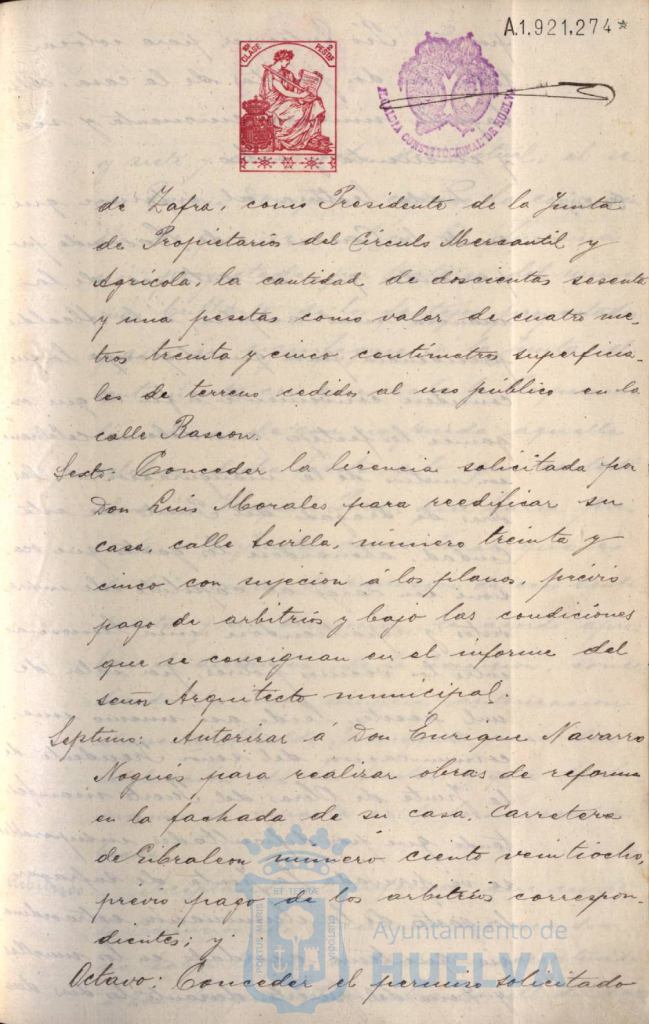 A.1.921.274*
10ª CLASE 2 PESETAS
ALCALDIA CONSTITUCIONAL DE HUELVA
de Zafra, como Presidente de la Junta
de Propietarios del Círculo Mercantil y
Agrícola, la cantidad de doscientas sesenta
y una pesetas como valor de cuatro me-
tros treinta y cinco centímetros superficia-
les de terreno cedidos al uso público en la
calle Rascon.
Sexto: Conceder la licencia solicitada por
Don Luis Morales para reedificar su
casa, calle Sevilla, número treinta y
cinco con sujecion á los planos, prévio
pago de arbitrios y bajo las condiciones
que se consignan en el informe del
señor Arquitecto municipal.
Septimo: Autorizar á Don Enrique Navarro
Nogués para realizar obras de reforma
en la fachada de su casa, Carretera
de Gibraleon número ciento veintiocho,
prévio pago de los arbitrios correspon-
dientes; y
Octavo: Conceder el permiso solicitado
PORTUS MARIS ET TERRAE CUSTODIA
Ayuntamiento de
HUELVA